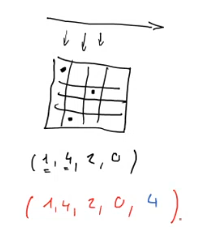 (1, 4, 2, 0)
(1, 4, 2, 0, 4).